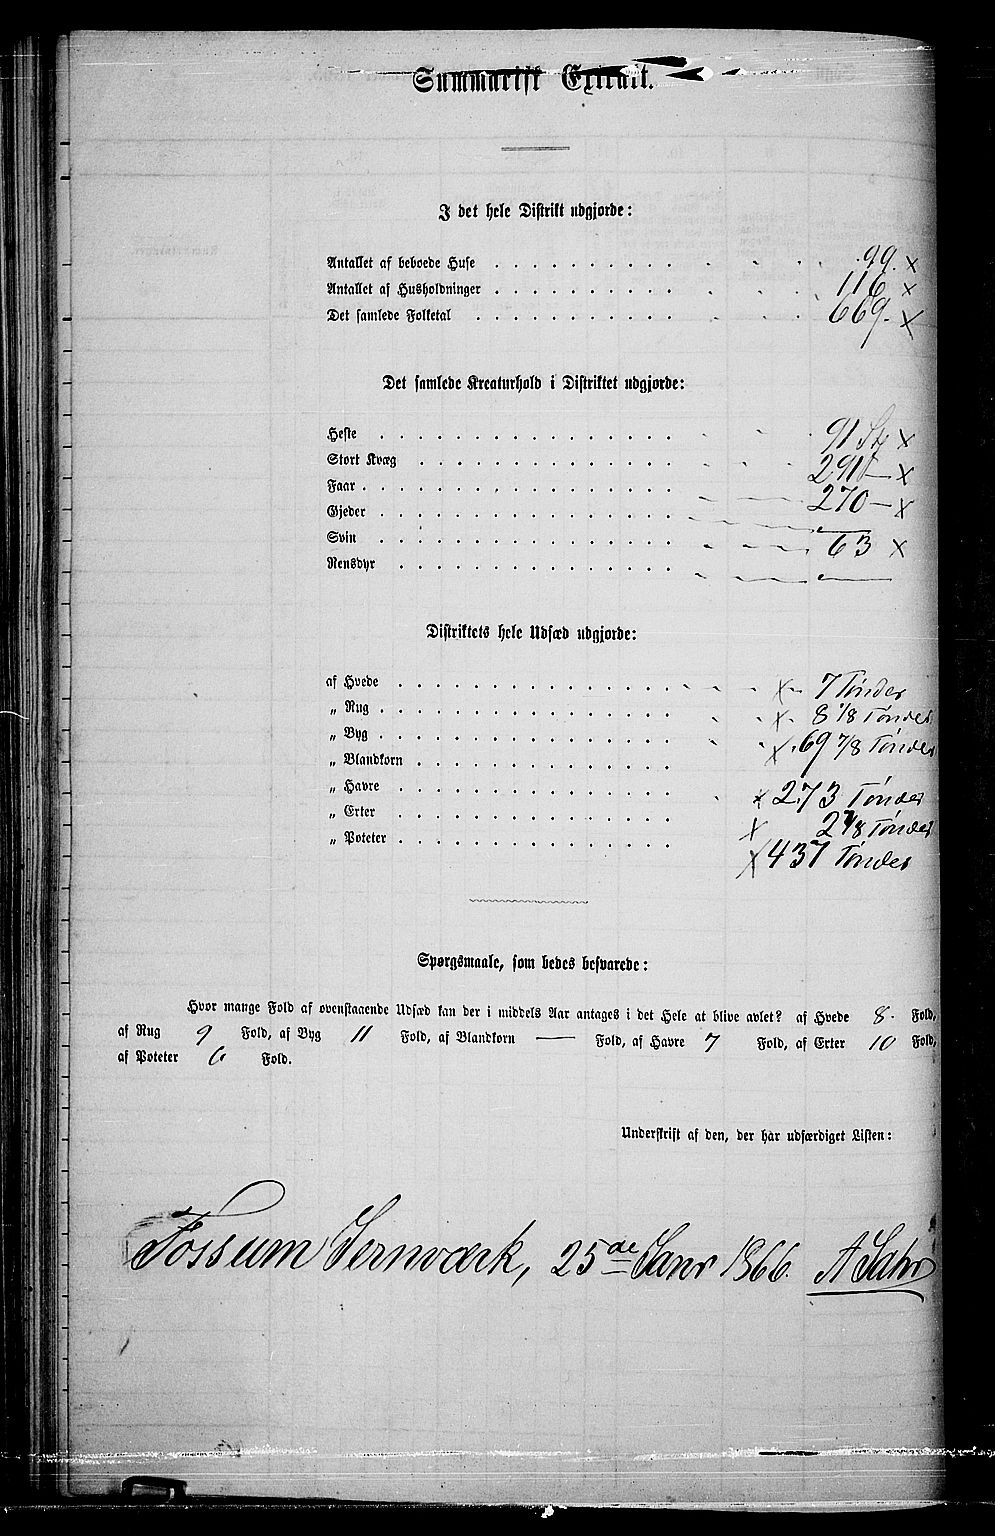 Summarisk Extrait.
I det hele Distrikt udgjorde:
Antallet af beboede Huse . . . . . . . . . . 99. x
Antallet af Husholdninger . . . . . . . . . . 116 x
Det samlede Folketal . . . . . . . . . . . 669. x
Det samlede Kreaturhold i Distriktet udgjorde:
Heste . . . . . . . . . . . . . . . . 91 St x
Stort Kvæg . . . . . . . . . . . . . . 291 — x
Faar . . . . . . . . . . . . . . . . . 270 — x
Gjeder . . . . . . . . . . . . . . . . —
Svin . . . . . . . . . . . . . . . . 63 x
Rensdyr . . . . . . . . . . . . . . . —
Distriktets hele Udsæd udgjorde:
af Hvede . . . . . . . . . . . . . . . x 7 Tønder
„ Rug . . . . . . . . . . . . . . . . x 8 1/8 Tønder
„ Byg . . . . . . . . . . . . . . . . x 69 7/8 Tønder
„ Blandkorn . . . . . . . . . . . . . .
„ Havre . . . . . . . . . . . . . . . x 273 Tønder
„ Erter . . . . . . . . . . . . . . . x 2 7/8 Tønder
„ Poteter . . . . . . . . . . . . . . . x 437 Tønder
Spørgsmaale, som bedes besvarede:
Hvor mange Fold af ovenstaaende Udsæd kan der i middels Aar antages i det Hele at blive avlet? af Hvede 8. Fold,
af Rug 9 Fold, af Byg 11 Fold, af Blandkorn — Fold, af Havre 7 Fold, af Erter 10 Fold,
af Poteter 6 Fold.
Underskrift af den, der har udfærdiget Listen:
Fossum Jernværk, 25de Janr 1866. A Jahr